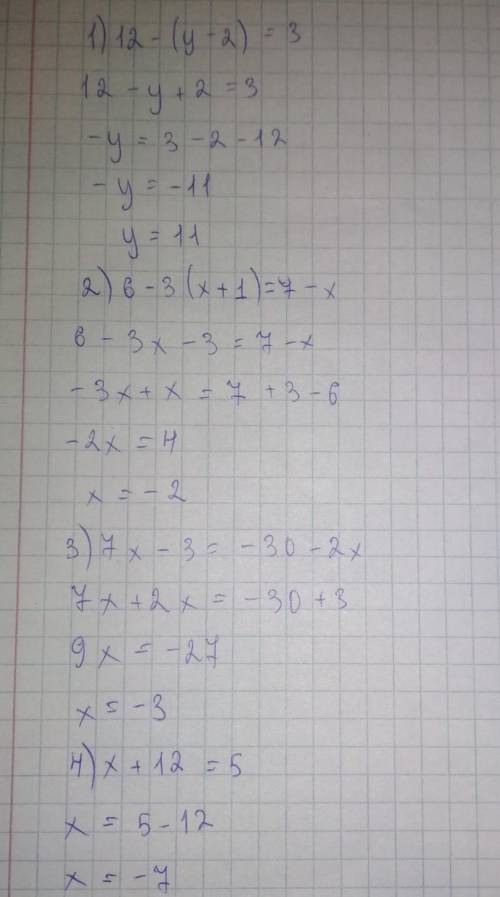 1) 12 - (y - 2) = 3
12 - y + 2 = 3
- y = 3 - 2 - 12
- y = -11
y = 11
2) 6 - 3 (x + 1) = 7 - x
6 - 3x - 3 = 7 - x
- 3x + x = 7 + 3 - 6
- 2x = 4
x = - 2
3) 7x - 3 = - 30 - 2x
7x + 2x = - 30 + 3
9x = - 27
x = - 3
4) x + 12 = 5
x = 5 - 12
x = - 7